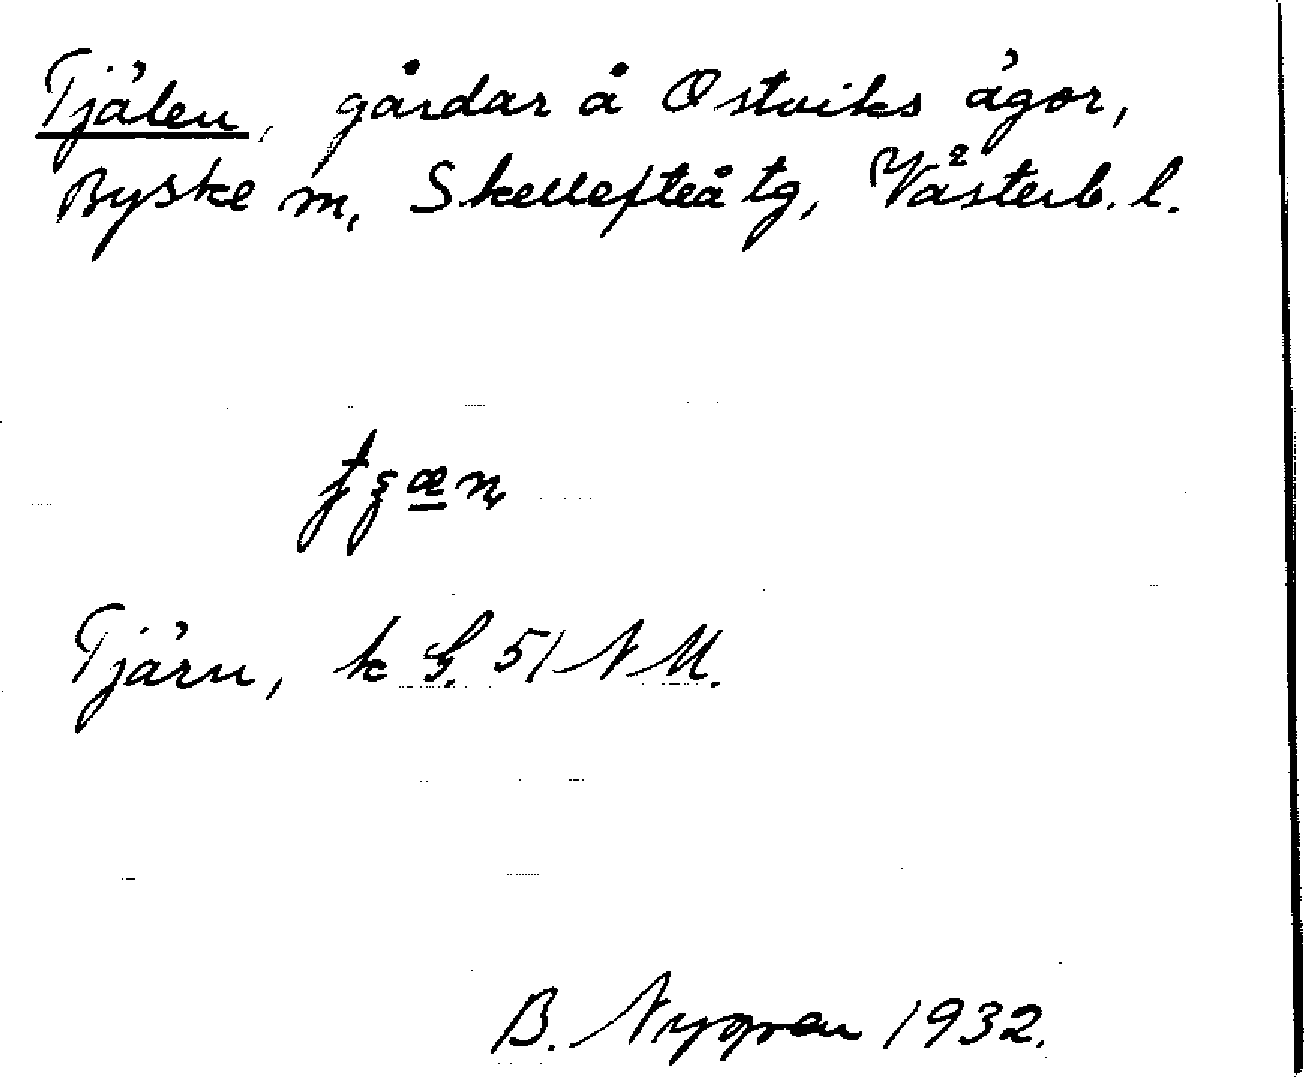 Tjälen, gårdar å Ostviks ägor,
Byske sn, Skellefteå tg, Västerb. l.
Tjärn, k G. 51 N M.
B. Nygren 1932.